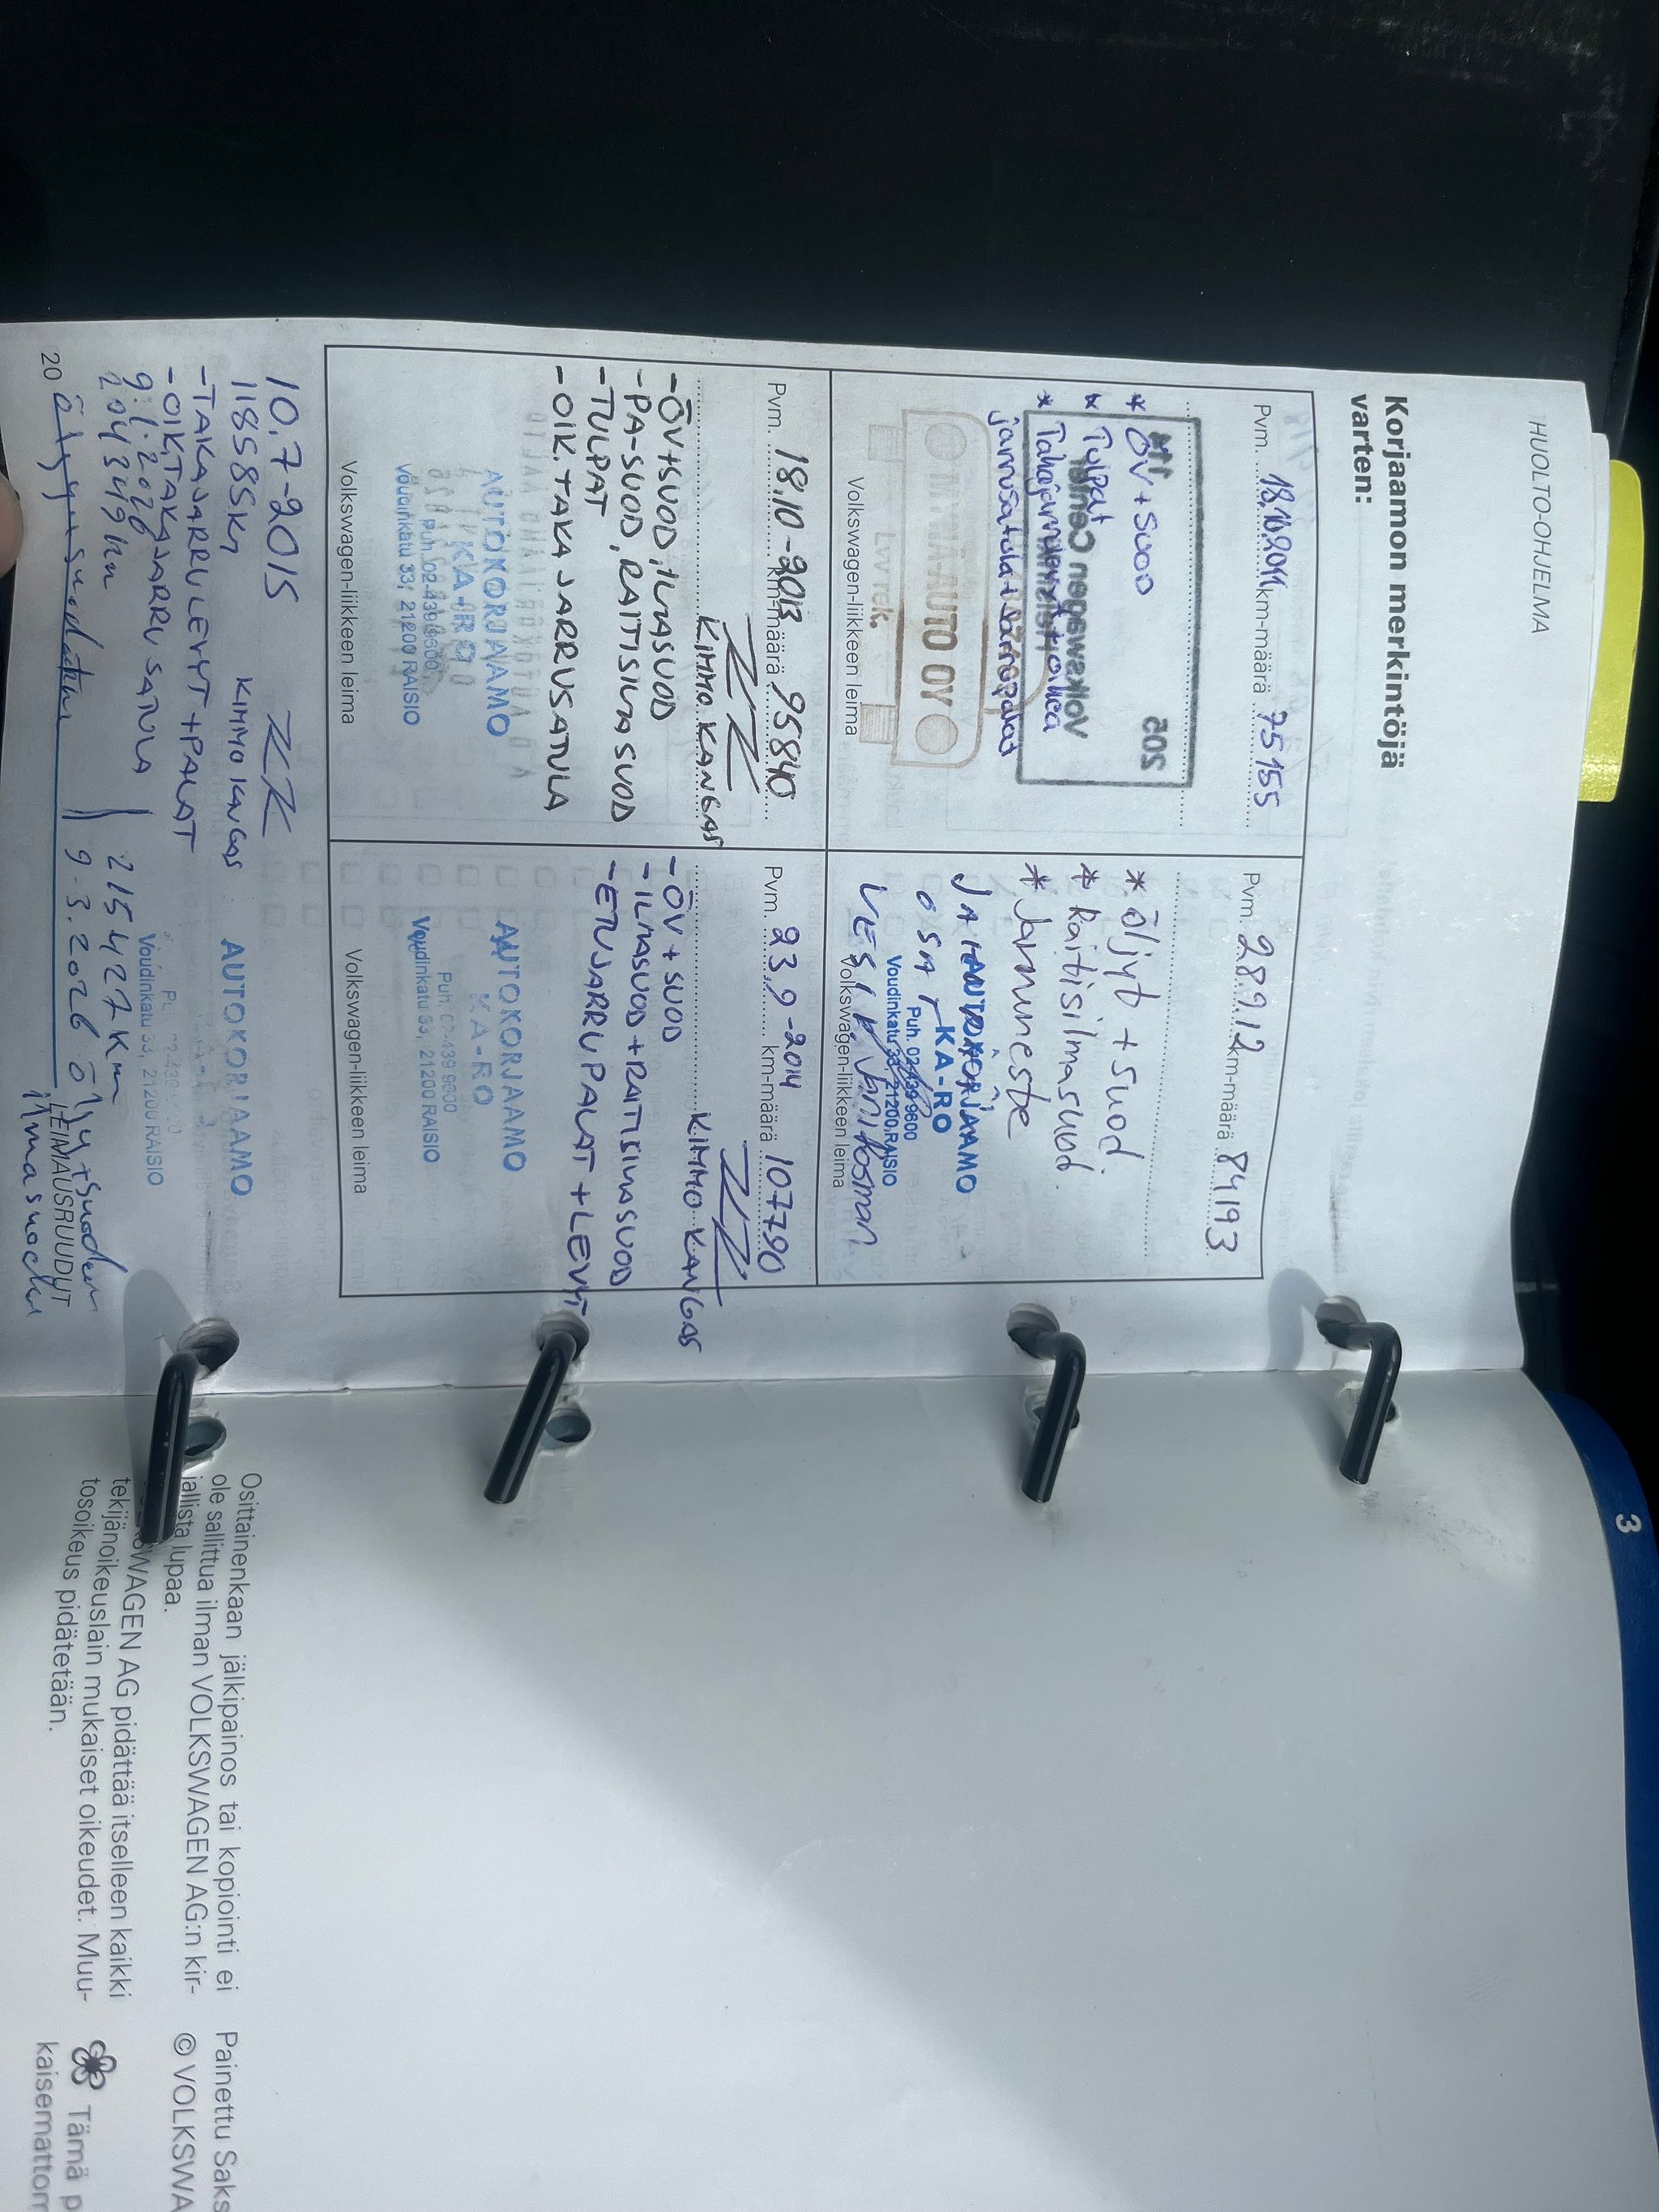 HUOLTO-OHJELMA
Korjaamon merkintöjä
varten:
Pvm. 18.10.2011 km-määrä 75155
* ÖV + SUOD
* Tulpat
* Takajarrulevyt + oikea
jarrusatula + jarrupalat
205
Volkswagen Center
LVV Tek.
Volkswagen-liikkeen leima
Pvm. 28.9.12 km-määrä 84193
* öljyt + suod.
* Raitisilmasuod.
* Jarruneste
AUTOKORJAAMO
KA-RO
Puh. 02-439 9600
Voudinkatu 33, 21200 RAISIO
Volkswagen-liikkeen leima
Pvm. 18.10-2013 km-määrä 95840
KIMMO KANGAS
-ÖV+SUOD, ILMASUOD
-PA-SUOD, RAITISILMASUOD
-TULPAT
-OIK. TAKA JARRUSATULA
AUTOKORJAAMO
KA-RO
Puh. 02-439 9600
Voudinkatu 33, 21200 RAISIO
Volkswagen-liikkeen leima
Pvm. 23.9-2014 km-määrä 107790
KIMMO KANGAS
-ÖV + SUOD
-ILMASUOD + RAITISILMASUOD
-ETUJARRUPALAT + LEVYT
AUTOKORJAAMO
KA-RO
Puh. 02-439 9600
Voudinkatu 33, 21200 RAISIO
Volkswagen-liikkeen leima
10.7-2015
118585km KIMMO KANGAS
-TAKAJARRULEVYT + PALAT
-OIK. TAKAJARRU SATULA
AUTOKORJAAMO
Voudinkatu 33, 21200 RAISIO
9.1.2026
204349 km
215427 km
9.3.2026 öljyt+suodatin
ilmasuodatin
20
LEIMAUSRUUDUT
3
Osittainenkaan jälkipainos tai kopiointi ei
ole sallittua ilman VOLKSWAGEN AG:n kir-
jallista lupaa.
WAGEN AG pidättää itselleen kaikki
tekijänoikeuslain mukaiset oikeudet. Muu-
tosoikeus pidätetään.
Painettu Saks
© VOLKSWA
Tämä p
kaisemattom